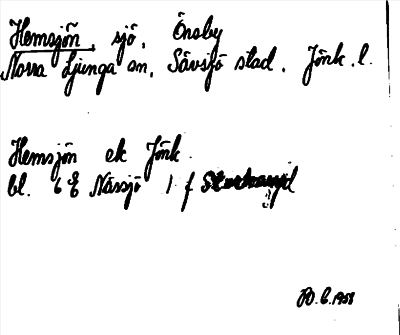 Hemsjön, sjö, Önsby
Norra Ljunga sn, Sävsjö stad. Jönk. l.
Hemsjön ek Jönk.
bl. 6 E Nässjö 1 f
1958